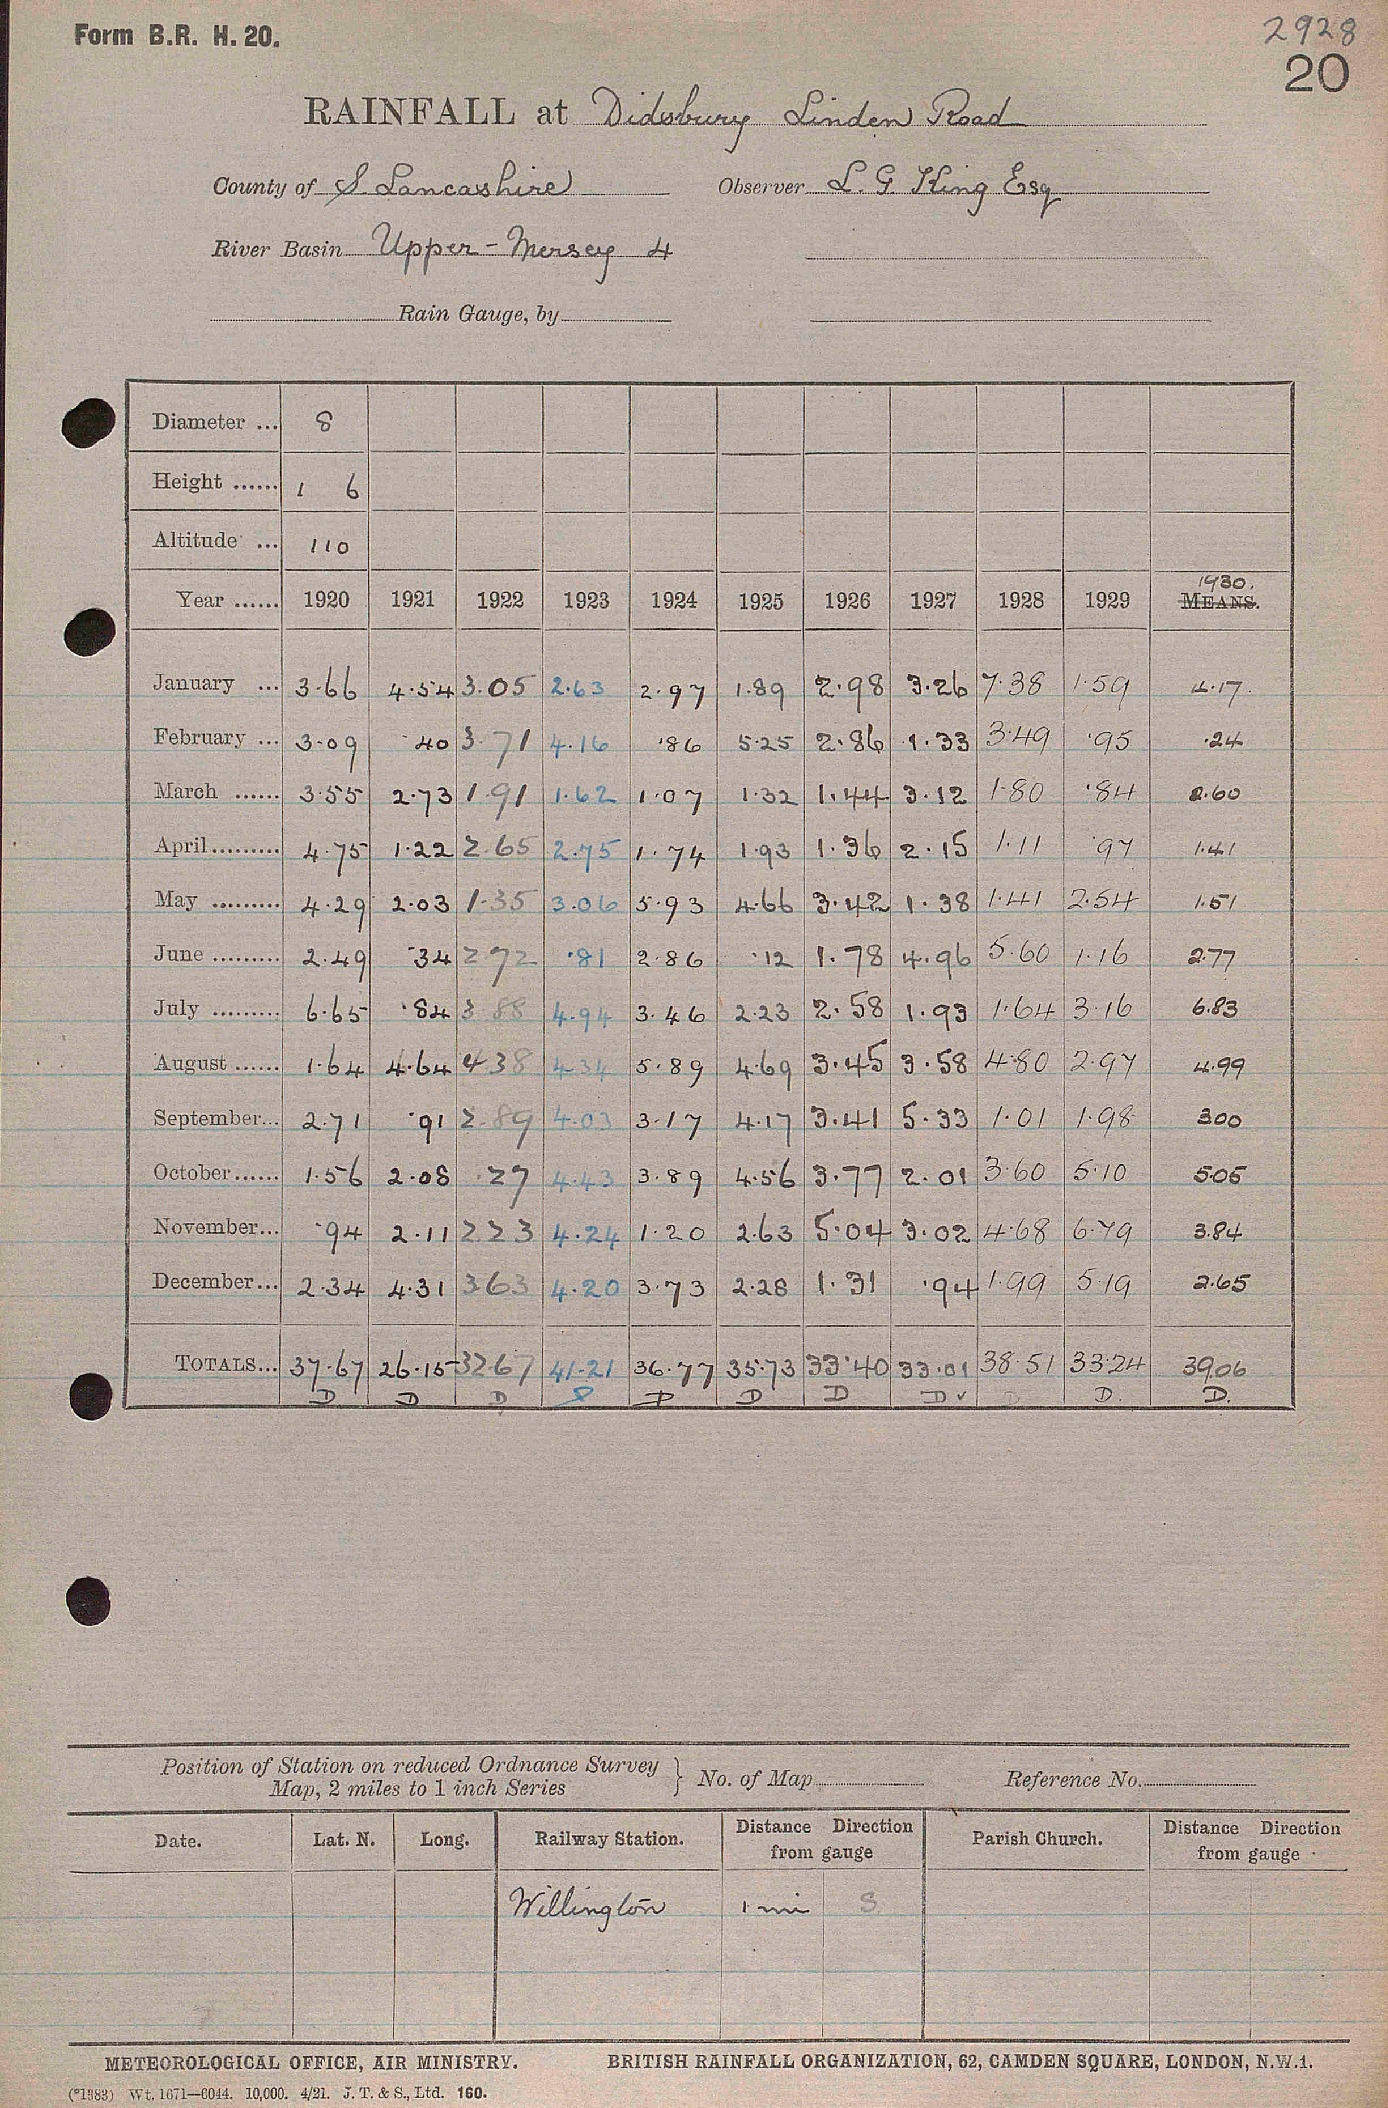 Form B.R. H. 20.
2928
20
RAINFALL at Didsbury Linden Road
County of S. Lancashire Observer L. G. King Esq
River Basin Upper-Mersey 4
Rain Gauge, by
Diameter ... 8
Height ...... 1 6
Altitude ... 110
1930.
Year ...... 1920 1921 1922 1923 1924 1925 1926 1927 1928 1929 MEANS.
January ... 3.66 4.54 3.05 2.63 2.97 1.89 2.98 3.26 7.38 1.59 4.17
February ... 3.09 .40 3.71 4.16 .86 5.25 2.86 1.33 3.49 .95 .24
March ...... 3.55 2.73 1.91 1.62 1.07 1.32 1.44 3.12 1.80 .84 2.60
April......... 4.75 1.22 2.65 2.75 1.74 1.93 1.36 2.15 1.11 .97 1.41
May ......... 4.29 2.03 1.35 3.06 5.93 4.66 3.42 1.38 1.41 2.54 1.51
June ......... 2.49 .34 2.72 .81 2.86 .12 1.78 4.96 5.60 1.16 2.77
July ......... 6.65 .84 3.88 4.94 3.46 2.23 2.58 1.93 1.64 3.16 6.83
August ...... 1.64 4.64 4.38 4.34 5.89 4.69 3.45 3.58 4.80 2.97 4.99
September... 2.71 .91 2.89 4.03 3.17 4.17 3.41 5.33 1.01 1.98 3.00
October...... 1.56 2.08 .27 4.43 3.89 4.56 3.77 2.01 3.60 5.10 5.05
November... .94 2.11 2.23 4.24 1.20 2.63 5.04 3.02 4.68 6.79 3.84
December... 2.34 4.31 3.63 4.20 3.73 2.28 1.31 .94 1.99 5.19 2.65
TOTALS... 37.67 26.15 32.67 41.21 36.77 35.73 33.40 33.01 38.51 33.24 39.06
D D D D D D D D ✓ D D. D.
Position of Station on reduced Ordnance Survey
Map, 2 miles to 1 inch Series } No. of Map Reference No.
Date. Lat. N. Long. Railway Station. Distance Direction from gauge Parish Church. Distance Direction from gauge
Willington 1 mi S
METEOROLOGICAL OFFICE, AIR MINISTRY. BRITISH RAINFALL ORGANIZATION, 62, CAMDEN SQUARE, LONDON, N.W.1.
(*1383) Wt. 1671—6044. 10,000. 4/21. J. T. & S., Ltd. 160.